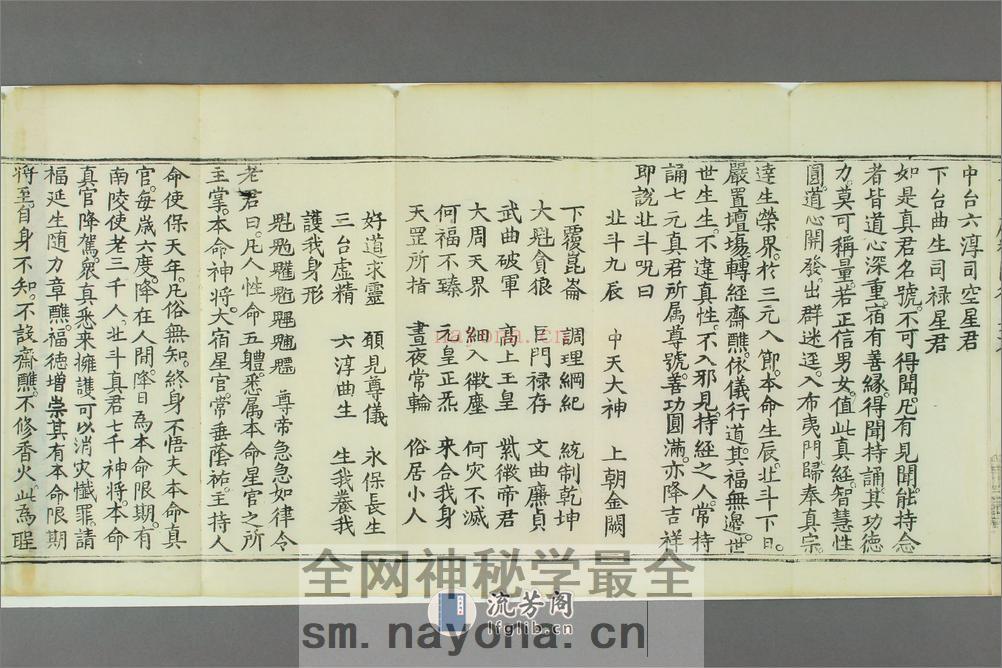 中台六淳司空星君
下台曲生司禄星君
如是真君名號。不可得聞。凡有見聞。能持念
者皆道心深重。宿有善緣。得聞持誦。其功德
力。莫可稱量。若正信男女。值此真經。智慧性
圓。道心開發。出群迷逕。入希夷門。歸奉真宗。
達生榮界。於三元八節。本命生辰。北斗下日。
嚴置壇場。轉經齋醮。依儀行道。其福無邊。世
世生生。不違真性。不入邪見。持經之人。常持
誦七元真君所属尊號。善功圓滿。亦降吉祥
即說北斗呪曰
北斗九辰 中天大神 上朝金闕
下覆崑崙 調理綱紀 統制乾坤
大魁貪狼 巨門禄存 文曲廉貞
武曲破軍 高上玉皇 紫微帝君
大周天界 細入微塵 何灾不滅
何福不臻 元皇正炁 來合我身
天罡所指 晝夜常輪 俗居小人
好道求靈 願見尊儀 永保長生
三台虛精 六淳曲生 生我養我
護我身形
尊帝急急如律令
老君曰。凡人性命五體。悉属本命星官之所
主掌。本命神將。大宿星官。常垂蔭祐。主持人
命。使保天年。凡俗無知。終身不悟。夫本命真
官。每歲六度。降在人間。降日為本命限期。有
南陵使老三千人。北斗真君七千神將。本命
真官降駕。衆真悉來擁護。可以消灾懺罪。請
福延生。随力章醮。福德增崇。其有本命限期
將至。自身不知。不設齋醮。不修香火。此為
全网神秘学最全
nayona.cn
流芳阁
lfglib.cn
sm.nayona.cn